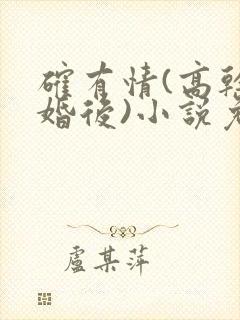 確有情(高幹
婚後)小說
盧某萍